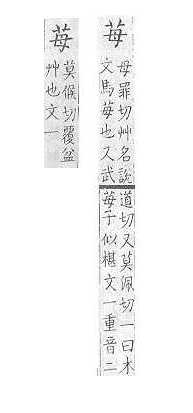 苺
母罪切艸名說
文馬苺也又武
道切又莫佩切一曰木
苺子似椹文一重音二
苺
莫候切覆盆
艸也文一